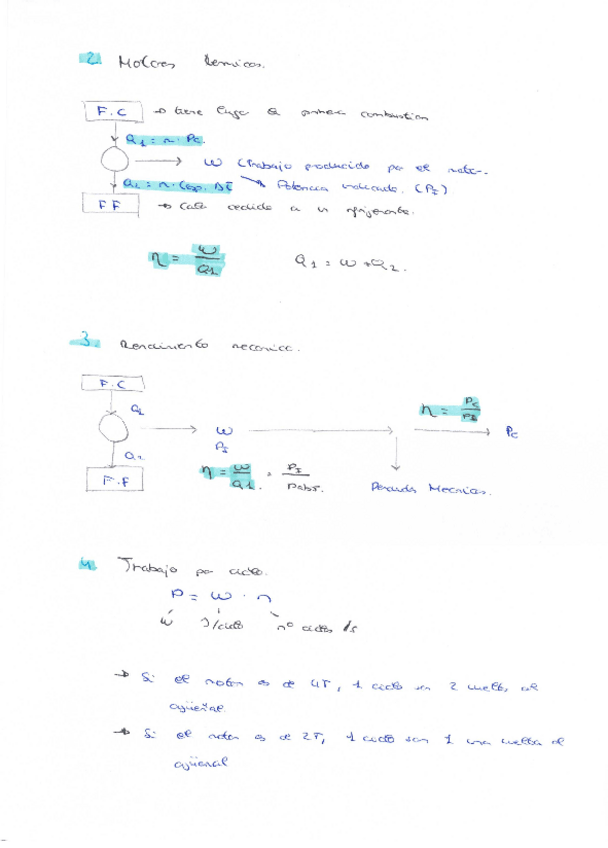 2. Motores térmicos.
F.C → tiene lugar la primera combustion
Q1 = m · Pc.
→ W (Trabajo producido por el motor.
Q2 = m · Cesp. Δt → Potencia indicada. (PI)
FF → Calor cedido a un refrigerante.
η = W / Q1 Q1 = W + Q2.
3. Rendimiento mecanico.
F.C
Q1
η = Pc / PI
W
Pc
PI
Q2
F.F
η = W / Q1. = PI / Pabs.
Perdidas Mecanicas.
4. Trabajo por ciclo.
P = W · n
W J/ciclo nº ciclos /s
→ Si el motor es de 4T, 1 ciclo son 2 vueltas al
cigüeñal.
→ Si el motor es de 2T, 1 ciclo son 1 una vuelta al
cigüeñal